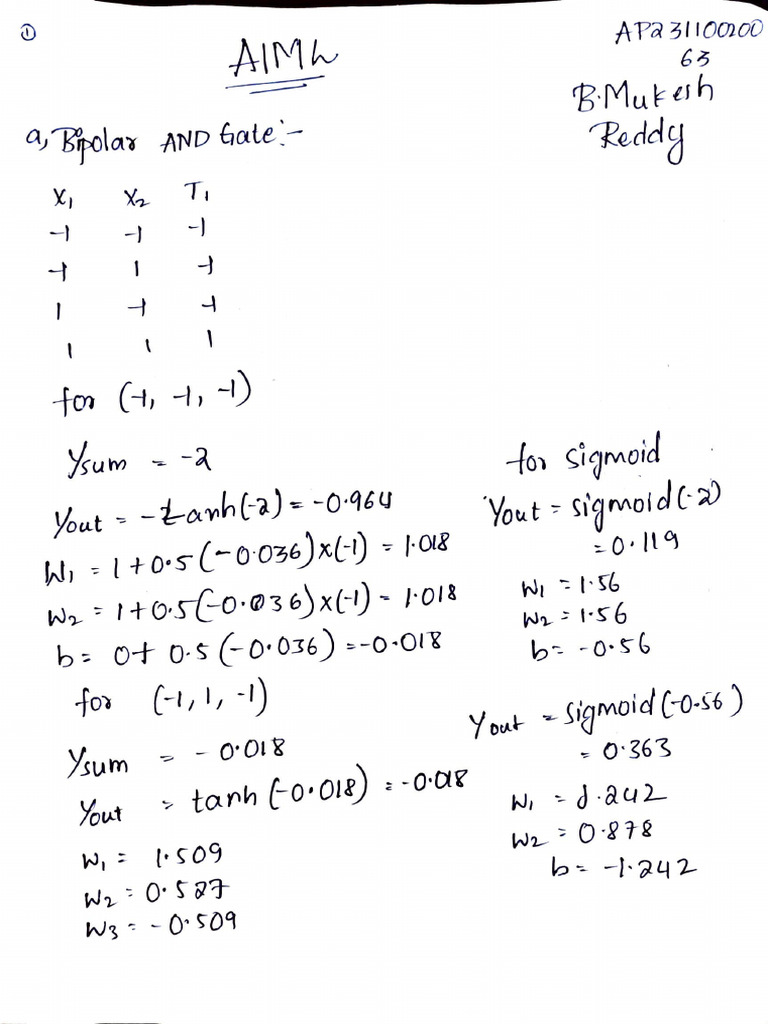 ①
AIML
AP231100200
63
B.Mukesh
Reddy
a, Bipolar AND Gate:-
X₁ X₂ T₁
-1 -1 -1
-1 1 -1
1 -1 -1
1 1 1
for (-1, -1, -1)
Ysum = -2
Yout = -tanh(-2) = -0.964
W₁ = 1+0.5(-0.036)x(-1) = 1.018
W₂ = 1+0.5(-0.036)x(-1) = 1.018
b = 0+ 0.5(-0.036) = -0.018
for (-1, 1, -1)
Ysum = -0.018
Yout = tanh(-0.018) = -0.018
W₁ = 1.509
W₂ = 0.527
W₃ = -0.509
for sigmoid
Yout = sigmoid(-2)
= 0.119
W₁ = 1.56
W₂ = 1.56
b = -0.56
Yout = sigmoid(-0.56)
= 0.363
W₁ = 2.242
W₂ = 0.878
b = -1.242